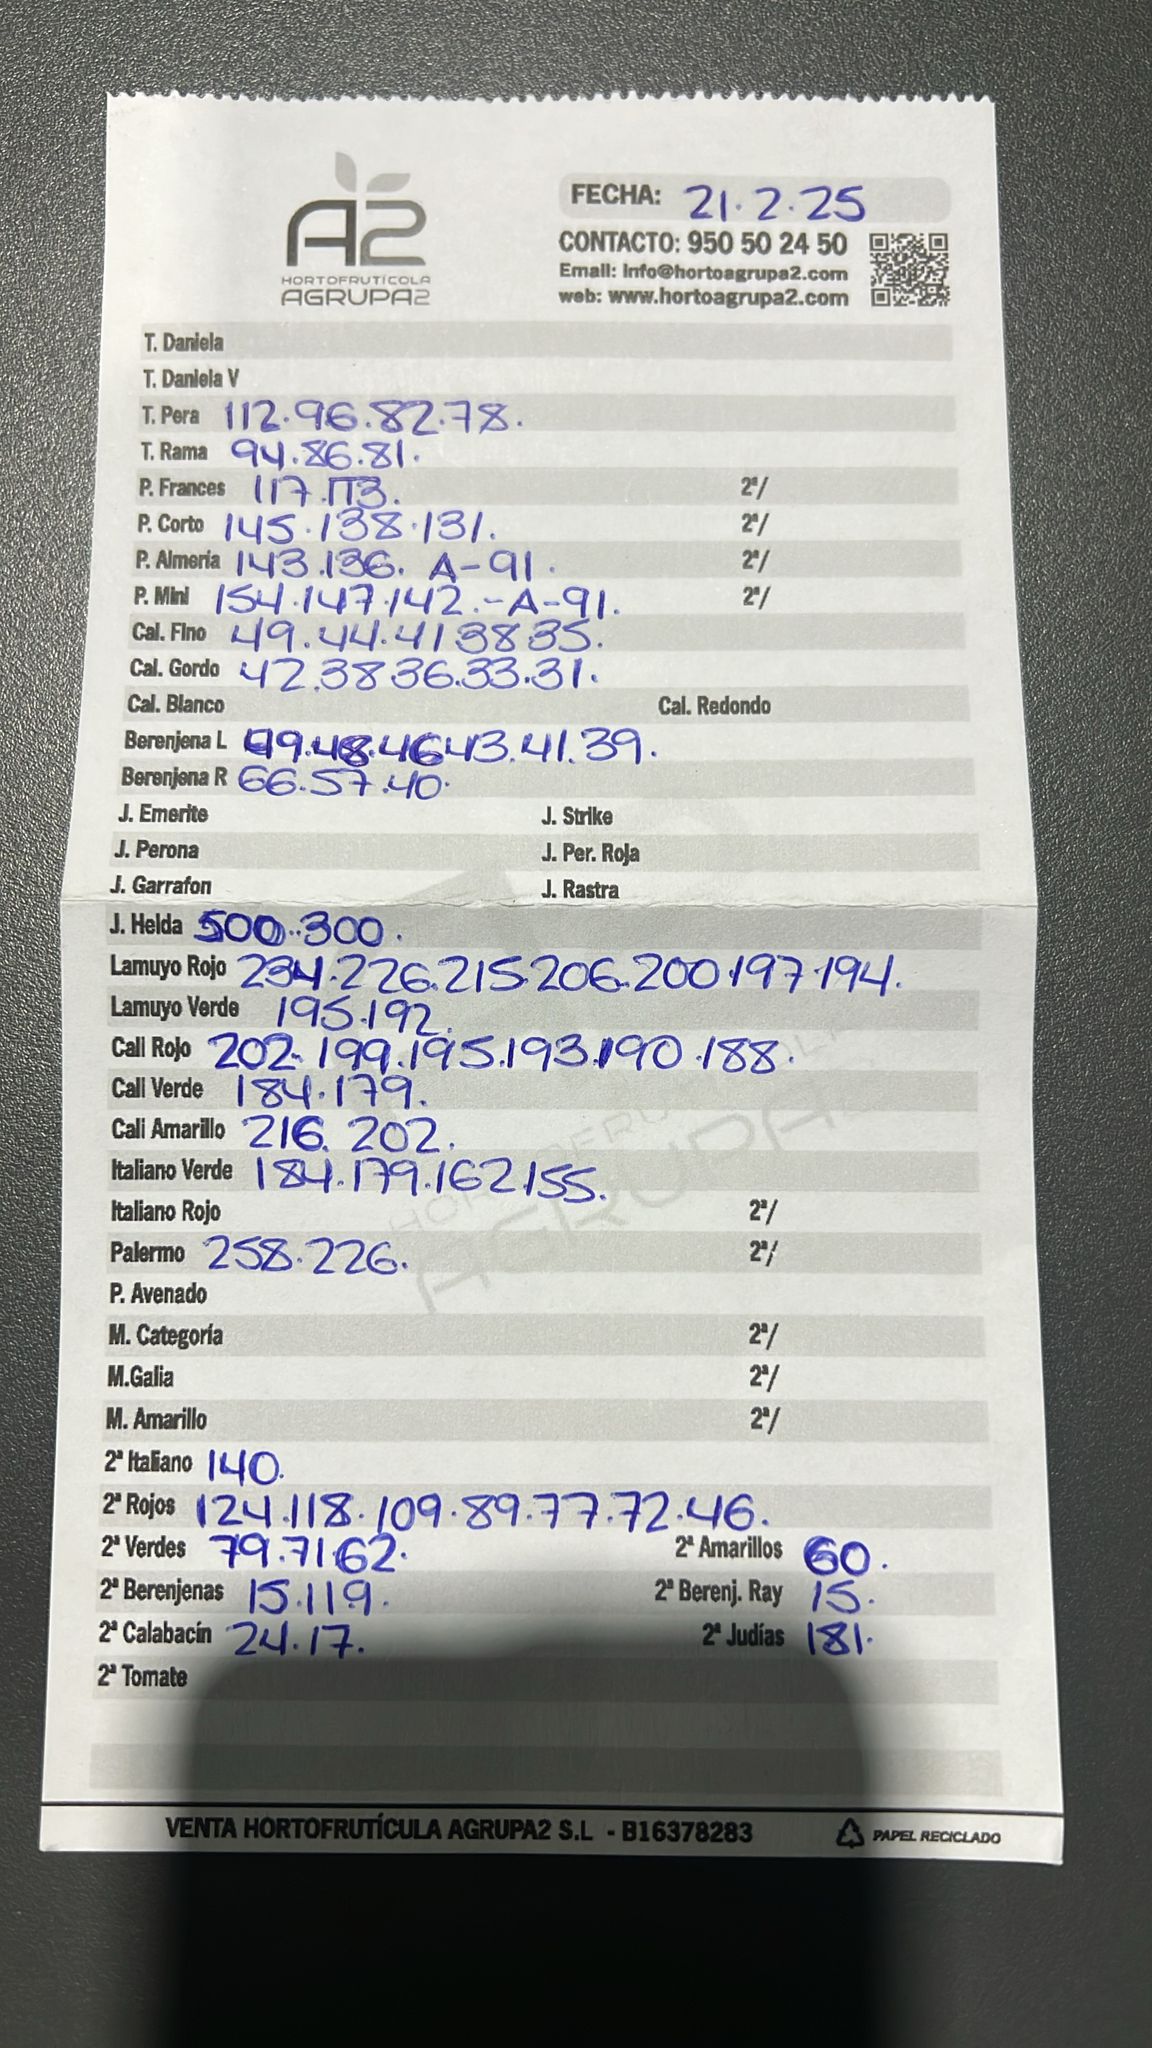 A2
HORTOFRUTÍCOLA
AGRUPA2
FECHA: 21.2.25
CONTACTO: 950 50 24 50
Email: info@hortoagrupa2.com
web: www.hortoagrupa2.com
T. Daniela
T. Daniela V
T. Pera 112.96.82.78.
T. Rama 94.86.81.
P. Frances 117.113. 2ª/
P. Corto 145.138.131. 2ª/
P. Almería 143.136. A-91. 2ª/
P. Mini 154.147.142.-A-91. 2ª/
Cal. Fino 49.44.41.38.35.
Cal. Gordo 42.38.36.33.31.
Cal. Blanco Cal. Redondo
Berenjena L 49.48.46.43.41.39.
Berenjena R 66.57.40.
J. Emerite J. Strike
J. Perona J. Per. Roja
J. Garrafon J. Rastra
J. Helda 500..300.
Lamuyo Rojo 234.226.215.206.200.197.194.
Lamuyo Verde 195.192.
Cali Rojo 202.199.195.193.190.188.
Cali Verde 184.179.
Cali Amarillo 216.202.
Italiano Verde 184.179.162.155.
Italiano Rojo 2ª/
Palermo 258.226. 2ª/
P. Avenado
M. Categoría 2ª/
M.Galia 2ª/
M. Amarillo 2ª/
2ª Italiano 140.
2ª Rojos 124.118.109.89.77.72.46.
2ª Verdes 79.71.62. 2ª Amarillos 60.
2ª Berenjenas 15.11.9. 2ª Berenj. Ray 15.
2ª Calabacín 24.17. 2ª Judías 181.
2ª Tomate
VENTA HORTOFRUTÍCULA AGRUPA2 S.L - B16378283 PAPEL RECICLADO